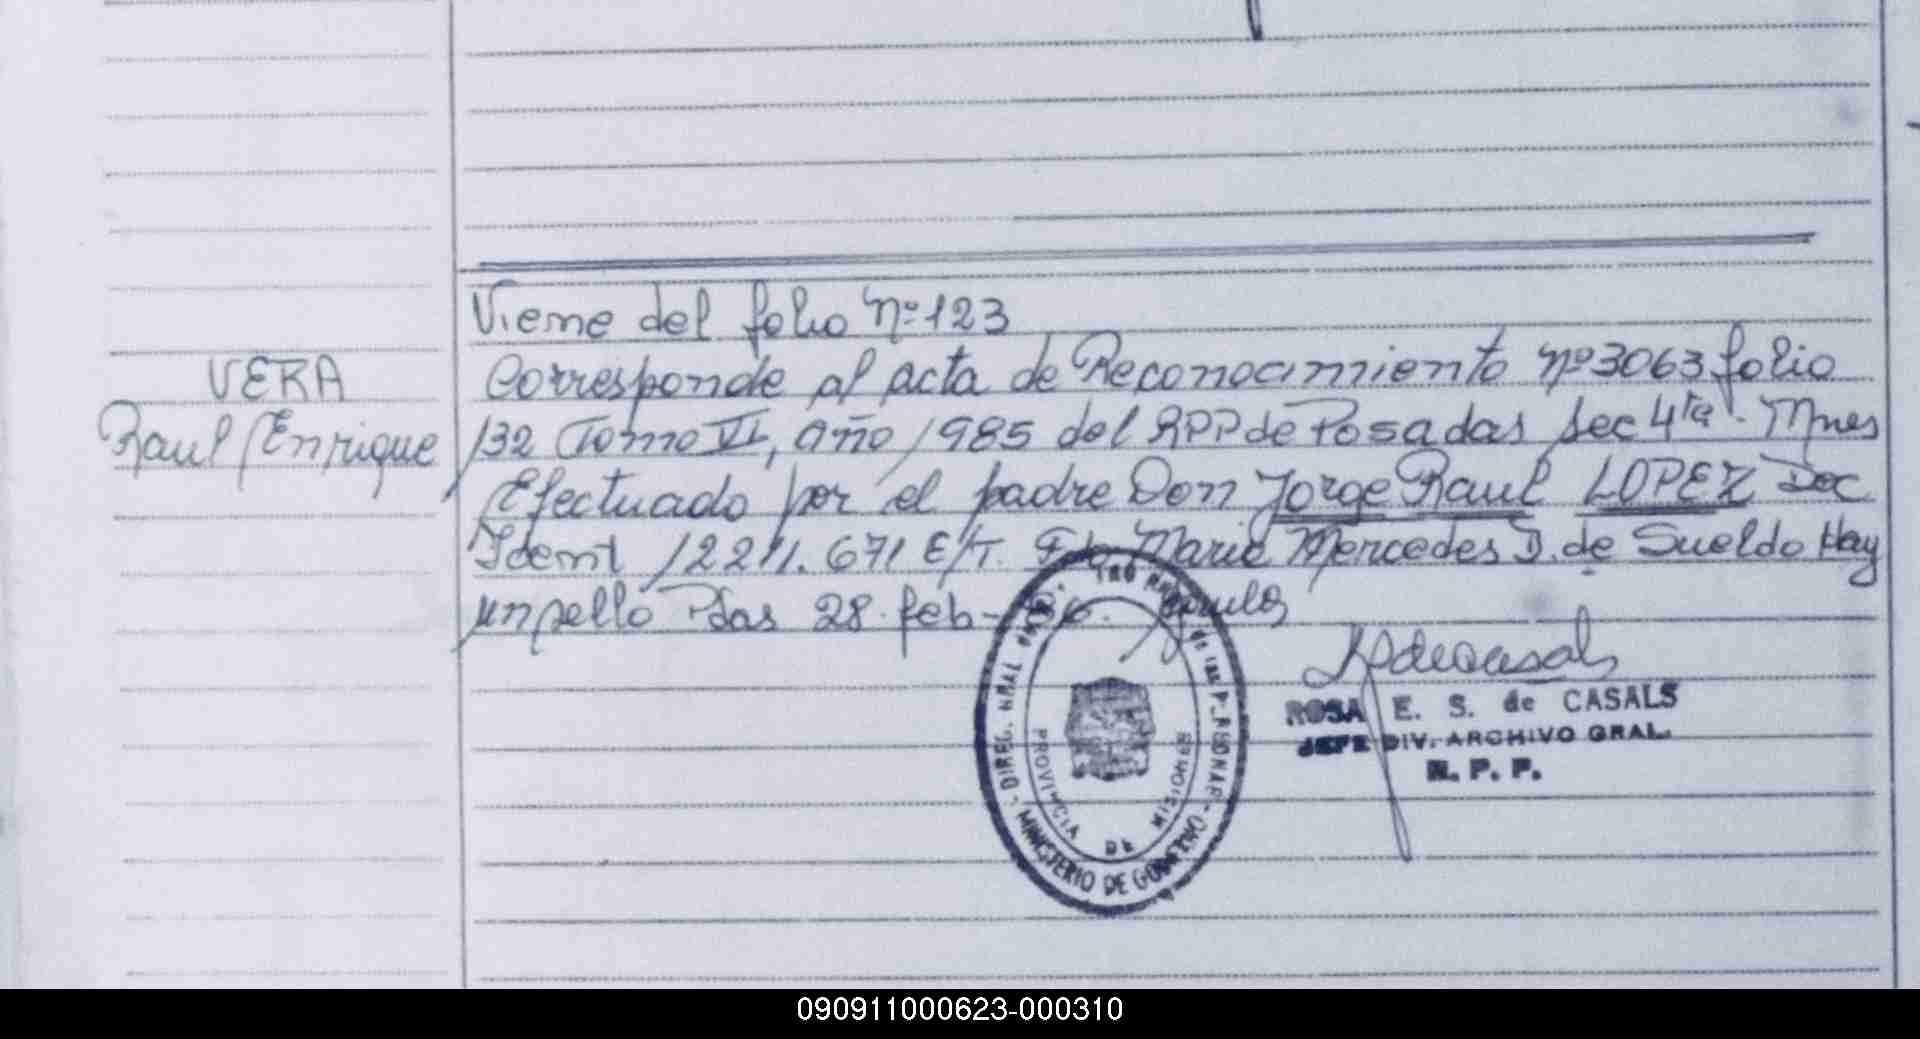 Viene del folio Nº 123
VERA
Raul Enrique
Corresponde al acta de Reconocimiento nº 3063 folio
132 Tomo VI, año 1985 del RPP de Posadas Sec 4ta. Mnes
Efectuado por el padre Don Jorge Raul LOPEZ Doc
Ident 12211.671 E/T. Fdo Maria Mercedes D. de Sueldo Hay
un sello Pdas 28. feb-
ROSA E. S. de CASALS
JEFE DIV. ARCHIVO GRAL.
R. P. P.
DIREC. GRAL
PROVINCIA DE MISIONES
MINISTERIO DE GOBIERNO
090911000623-000310